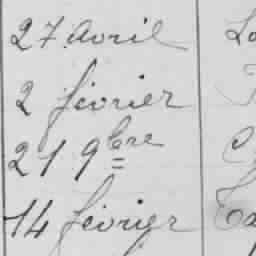 27 avril
2 février
21 9bre
14 février